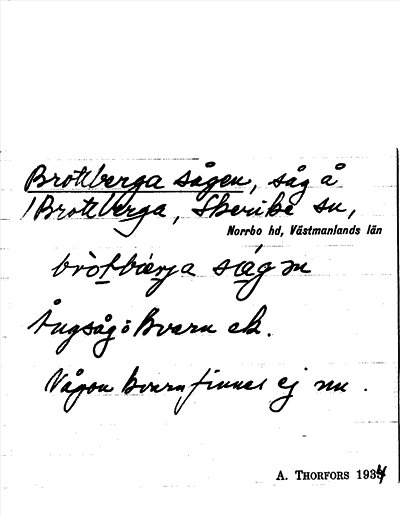 Brottberga sågen, såg å
/Brottberga, Skerike sn,
Norrbo hd, Västmanlands län
bròtbærja sågen
Ångsåg o kvarn ek.
Någon kvarn finnes ej nu.
A. THORFORS 1934